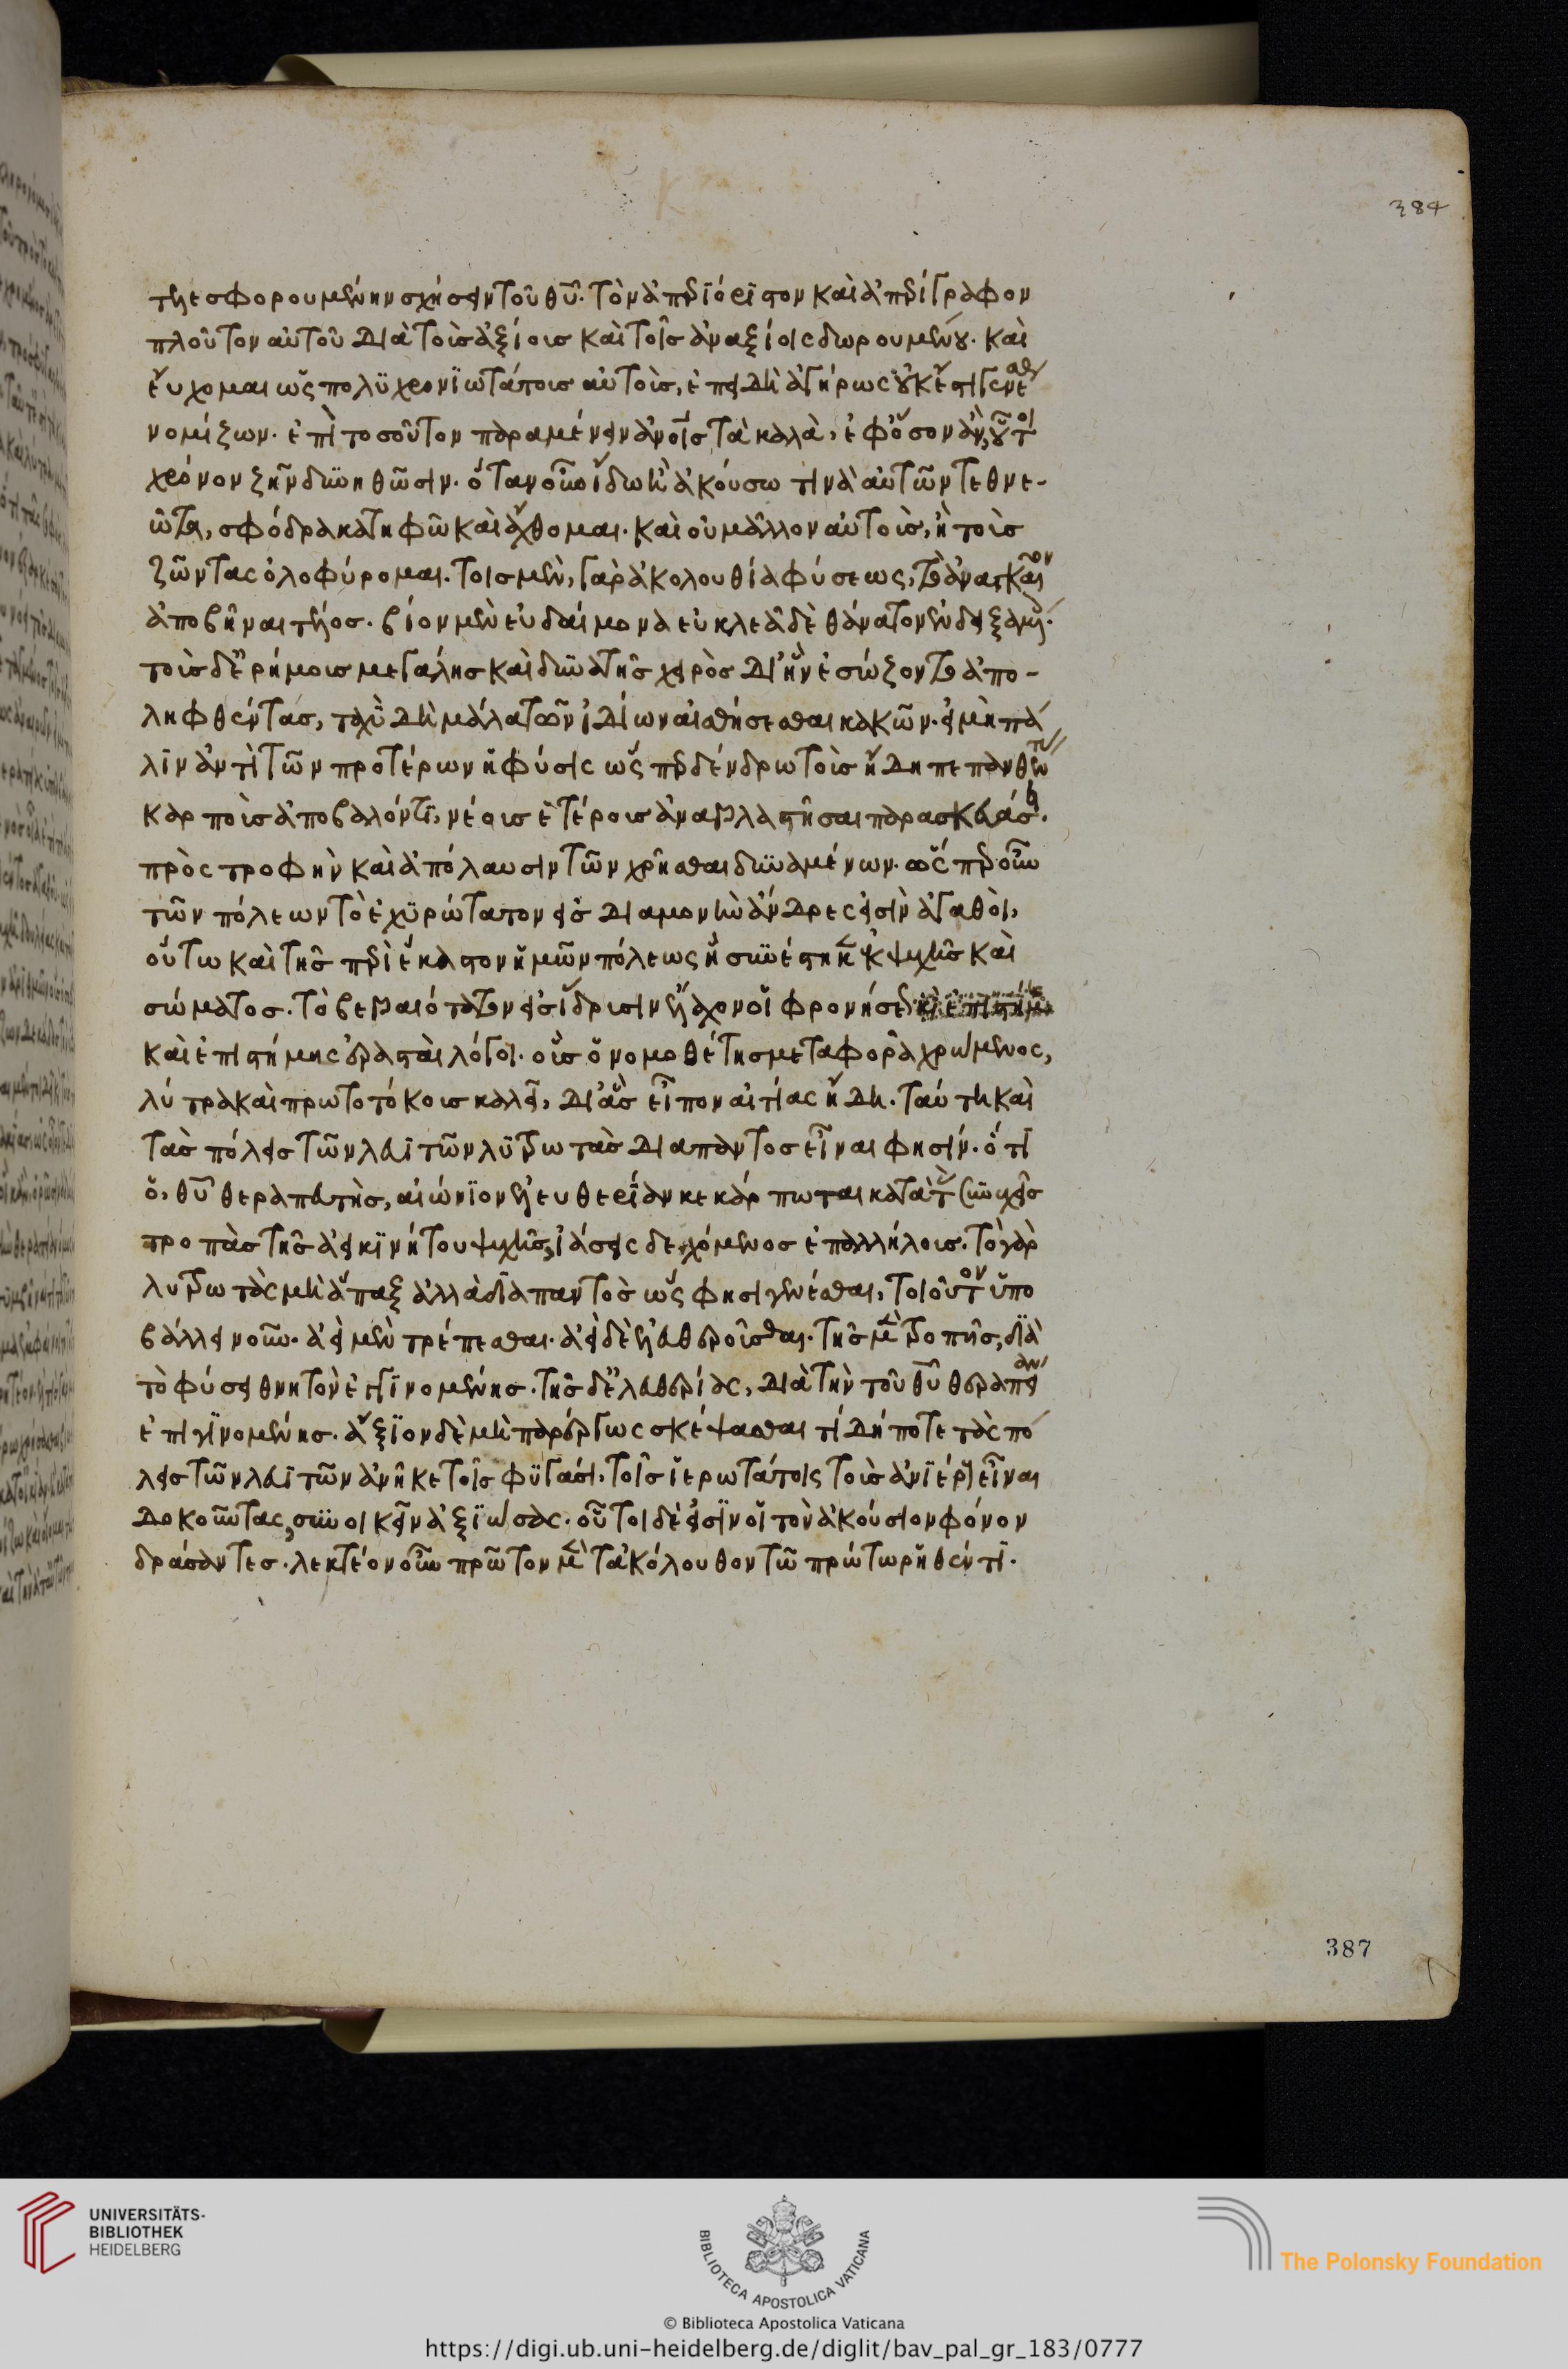 τηεσφορουμένην σχήσειν τοῦ θυ. τὸν ἀπεριόριστον καὶ ἀπερίγραφον
πλοῦτον αὐτοῦ διὰ τοὺς ἀξίους καὶ τοῖς ἀναξίοις δωρουμένου. καὶ
εὔχομαι ὡς πολυχρονιωτάτους αὐτοὺς, ἐπειδὴ ἀγήρως οὐκ ἔστι γενέσθ
νομίζων. ἐπὶ τοσοῦτον παραμένειν ἀνοις τὰ καλὰ, ἐφ ὅσον ἂν, οὗτοι
χρόνον ζῆν δυνηθῶσιν. ὅταν οὖν ἴδω ἢ ἀκούσω τινὰ αὐτῶν τεθνε-
ῶτα, σφόδρα κατηφῶ καὶ ἄχθομαι. καὶ οὐ μᾶλλον αὐτοὺς, ἢ τοὺς
ζῶντας ὀλοφύρομαι. τοῖς μὲν, γὰρ ἀκολουθία φύσεως, τὸ ἀναγκαῖον
ἀποβῆναι τέλος. βίον μὲν εὐδαίμονα εὐκλεᾶ δὲ θάνατον ἐνδειξαμέ.
τοὺς δὲ ἐρήμους μεγάλης καὶ δυνατῆς χειρὸς δι' ἣν ἐσώζοντο ἀπο-
ληφθέντας, ταχὺ δὴ μάλα τῶν ἰδίων αἰσθήσεσθαι κακῶν. εἰ μὴ πά
λιν ἀντὶ τῶν προτέρων ἡ φύσις ὡς περ δένδρω τοὺς ἤδη πεπανθέντ
καρποὺς ἀποβαλόντι, νέους ἑτέρους ἀναβλαστῆσαι παρασκευάσει.
πρὸς τροφὴν καὶ ἀπόλαυσιν τῶν χρῆσθαι δυναμένων. ὥς περ οὖν
τῶν πόλεων τὸ ἐχυρώτατον εἰς διαμονὴν ἄνδρες εἰσὶν ἀγαθοὶ,
οὕτω καὶ τῆς περὶ ἕκαστον ἡμῶν πόλεως ἣ συνέστηκεν ἐκ ψυχῆς καὶ
σώματος. τὸ βεβαιότατον εἰς ἵδρυσιν εἴληχον οἱ φρονήσεως
καὶ ἐπιστήμης ἐρασταὶ λόγοι. οὓς ὁ νομοθέτης μεταφορᾶ χρώμενος,
λύτρα καὶ πρωτοτόκους καλεῖ, δι' ἃς εἶπον αἰτίας ἤδη. ταύτη καὶ
τὰς πόλεις τῶν λευϊτῶν λυτρωτὰς διαπαντος εἶναι φησίν. ὅτι
ὁ, θυ θεραπευτὴς, αἰώνιον ἐλευθερίαν κεκάρπωται κατὰ τ συνεχεῖς
τροπὰς τῆς ἀεικινήτου ψυχῆς, ἰάσεις δεχόμενος ἐπαλλήλους. τὸ γὰρ
λυτρωτὰς μὴ ἅπαξ ἀλλὰ διαπαντὸς ὡς φησι γενέσθαι, τοιοῦτον ὑπο
βάλλει νοῦν. ἀεὶ μὲν τρέπεσθαι. ἀεὶ δὲ ἐλευθεροῦσθαι. τῆς μὲν τροπῆς, διὰ
τὸ φύσει θνητὸν ἐγγινομένης. τῆς δὲ ἐλευθερίας, διὰ τὴν τοῦ θυ θεραπείαν
ἐπιγινομένης. ἄξιον δὲ μὴ παρέργως σκέψασθαι τί δήποτε τὰς πό
λεις τῶν λευϊτῶν ἀνῆκε τοῖς φυγάσι, τοῖς ἱερωτάτοις τοὺς ἀνιέρους εἶναι
δοκοῦντας, συνοικεῖν ἀξιώσας. οὗτοι δέ εἰσιν οἱ τὸν ἀκούσιον φόνον
δράσαντες. λεκτέον οὖν πρῶτον μὲν τἀκόλουθον τῶ πρώτω ρηθέντι.
384
387
UNIVERSITÄTS-
BIBLIOTHEK
HEIDELBERG
BIBLIOTECA APOSTOLICA VATICANA
The Polonsky Foundation
© Biblioteca Apostolica Vaticana
https://digi.ub.uni-heidelberg.de/diglit/bav_pal_gr_183/0777